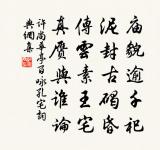 廟貌逾千祀
泥封古碣昏
傳雲素王宅
真贋與誰論
許尚華亭百詠孔宅詞
典網集